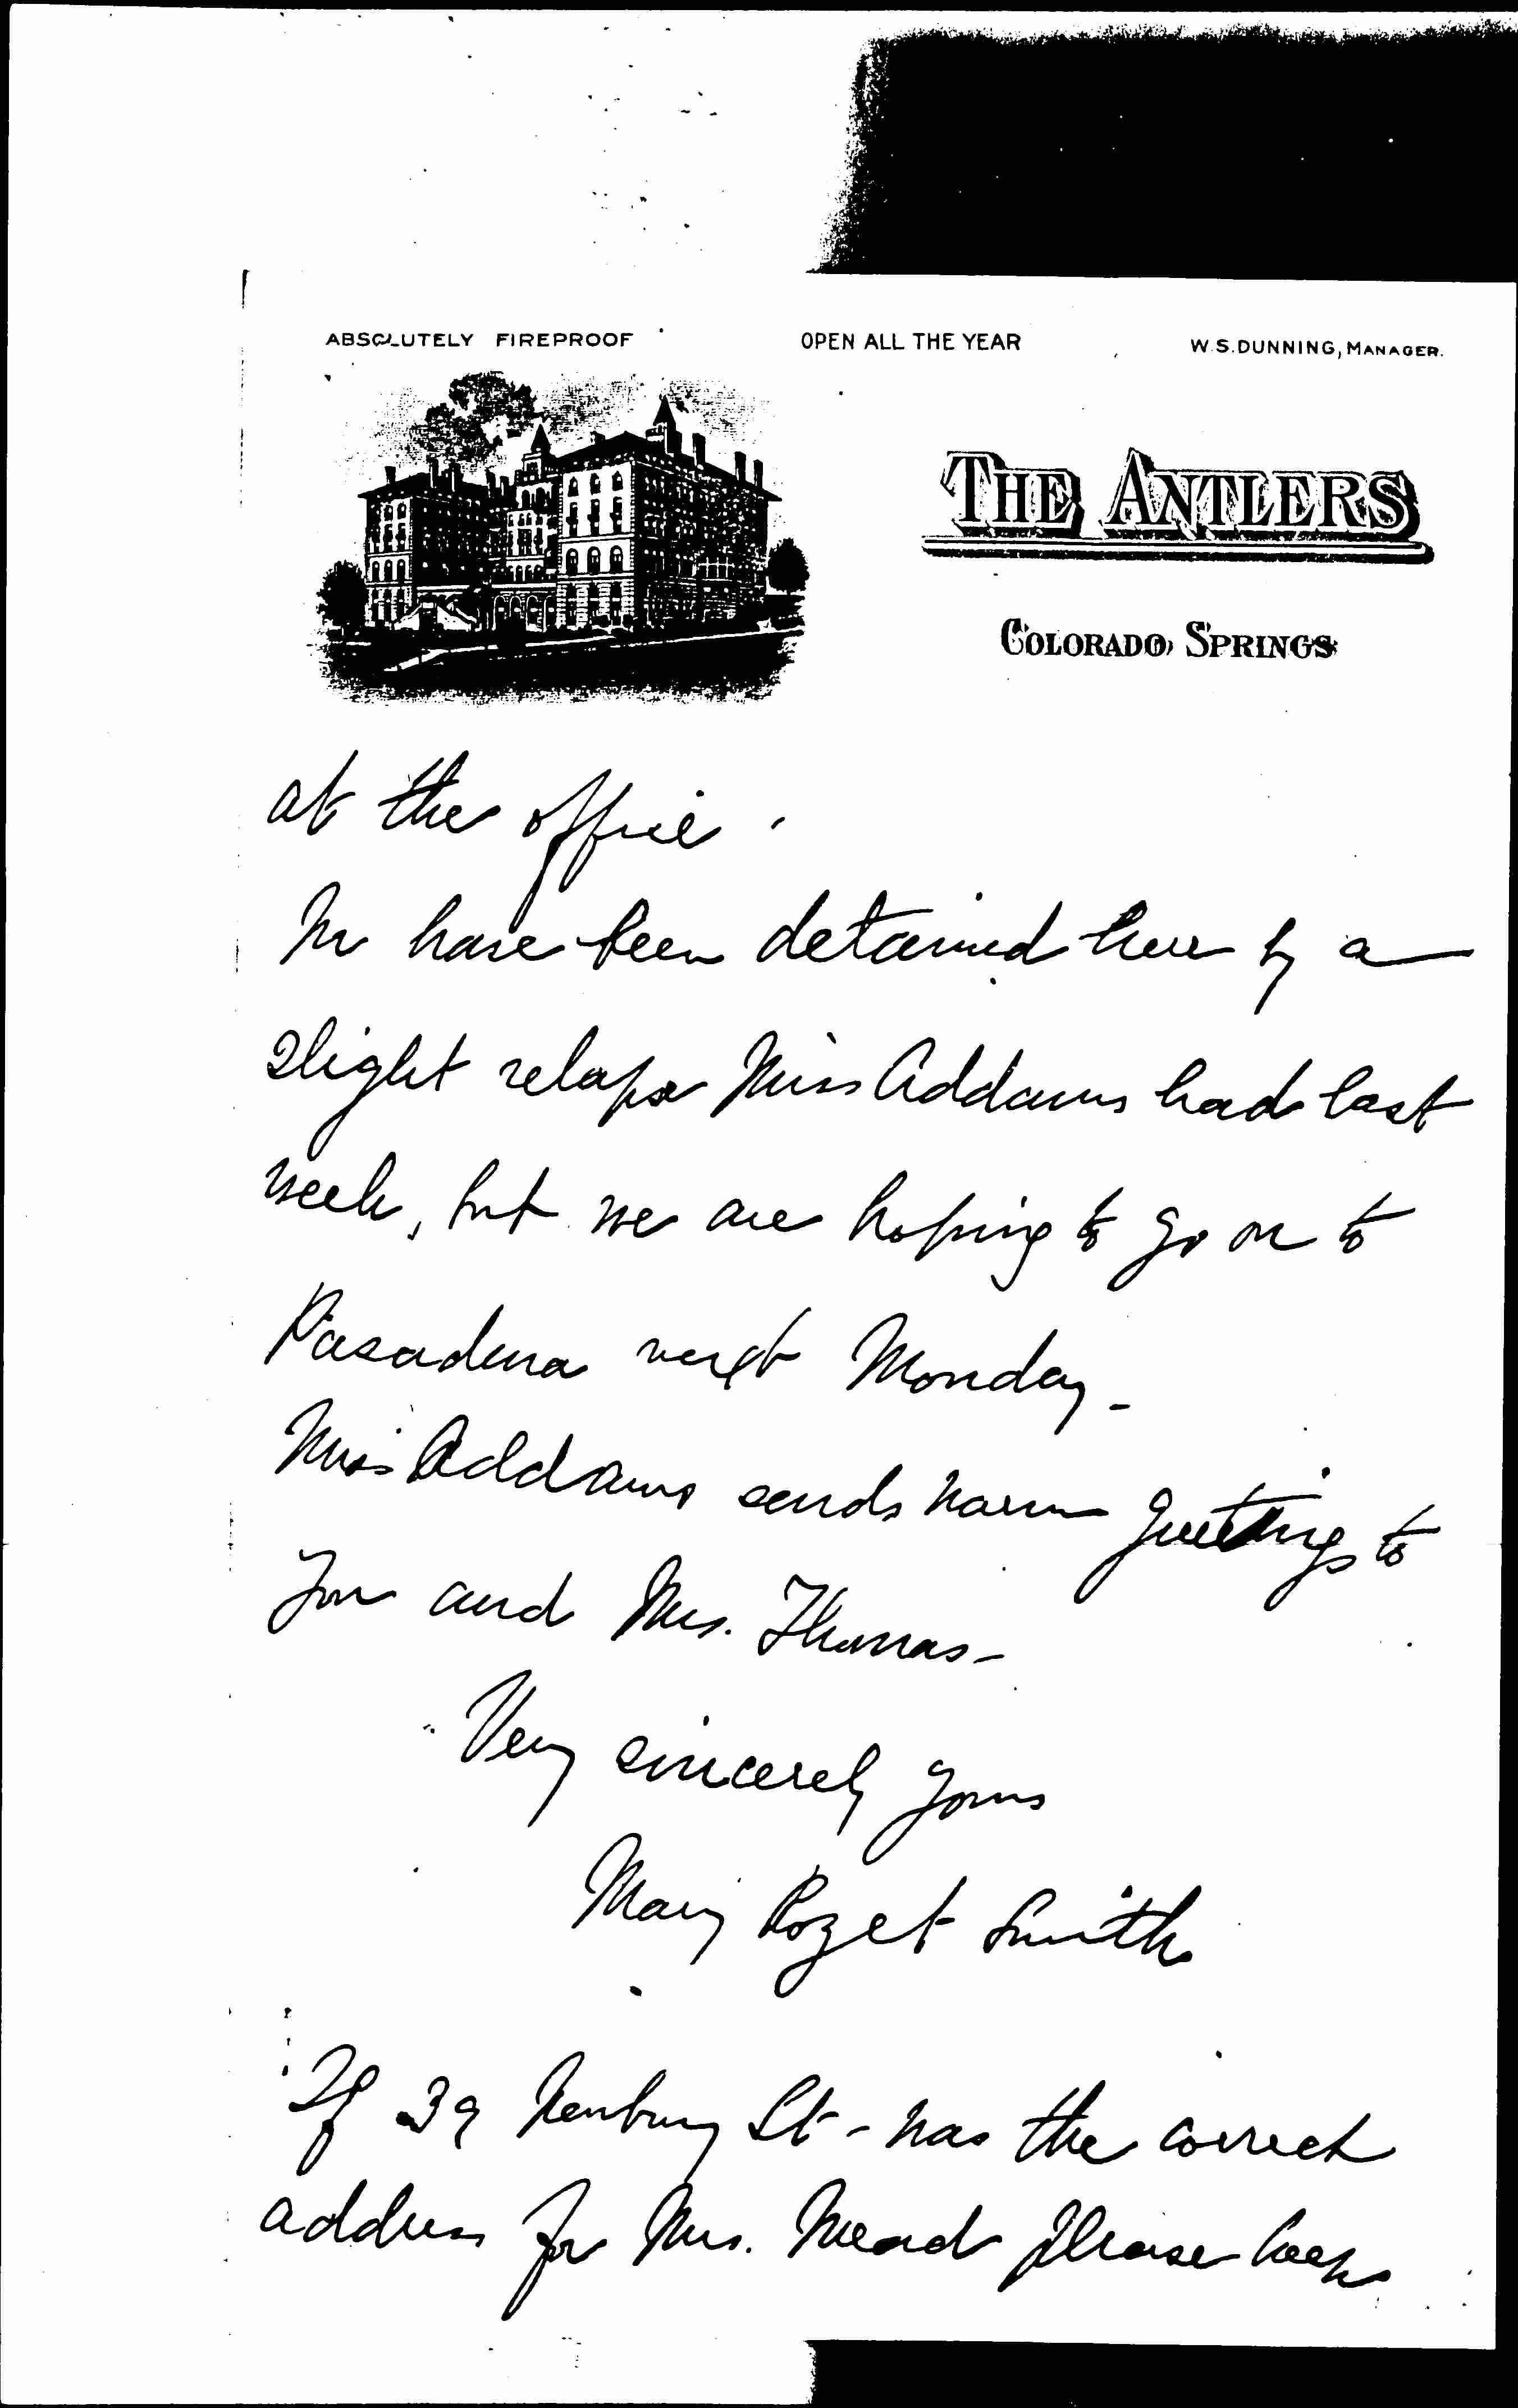 ABSOLUTELY FIREPROOF OPEN ALL THE YEAR W.S. DUNNING, MANAGER.
THE ANTLERS
COLORADO SPRINGS
at the office.
We have been detained here by a
slight relapse Miss Addams had last
week, but we are hoping to go on to
Pasadena next Monday -
Miss Addams sends warm greetings to
you and Mrs. Thomas -
Very sincerely yours
Mary Rozet Smith
If 39 Newbury St - was the correct
address for Mrs. Mead please keep